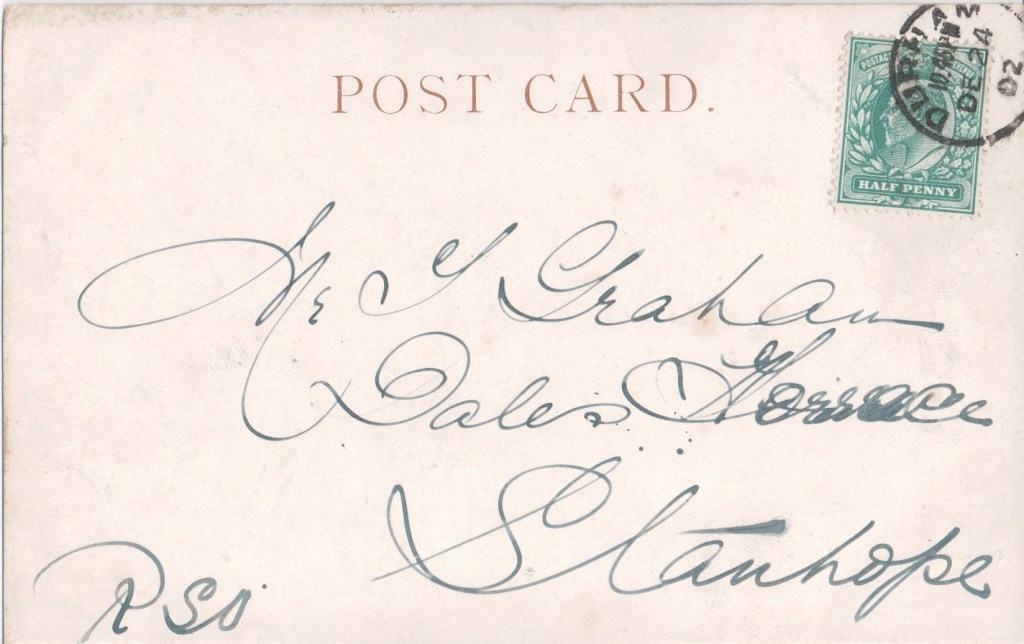 POST CARD.
POSTAGE
HALF PENNY
DURHAM
DE 24
02
Mr J Graham
Dales Terrace
Stanhope
RSO